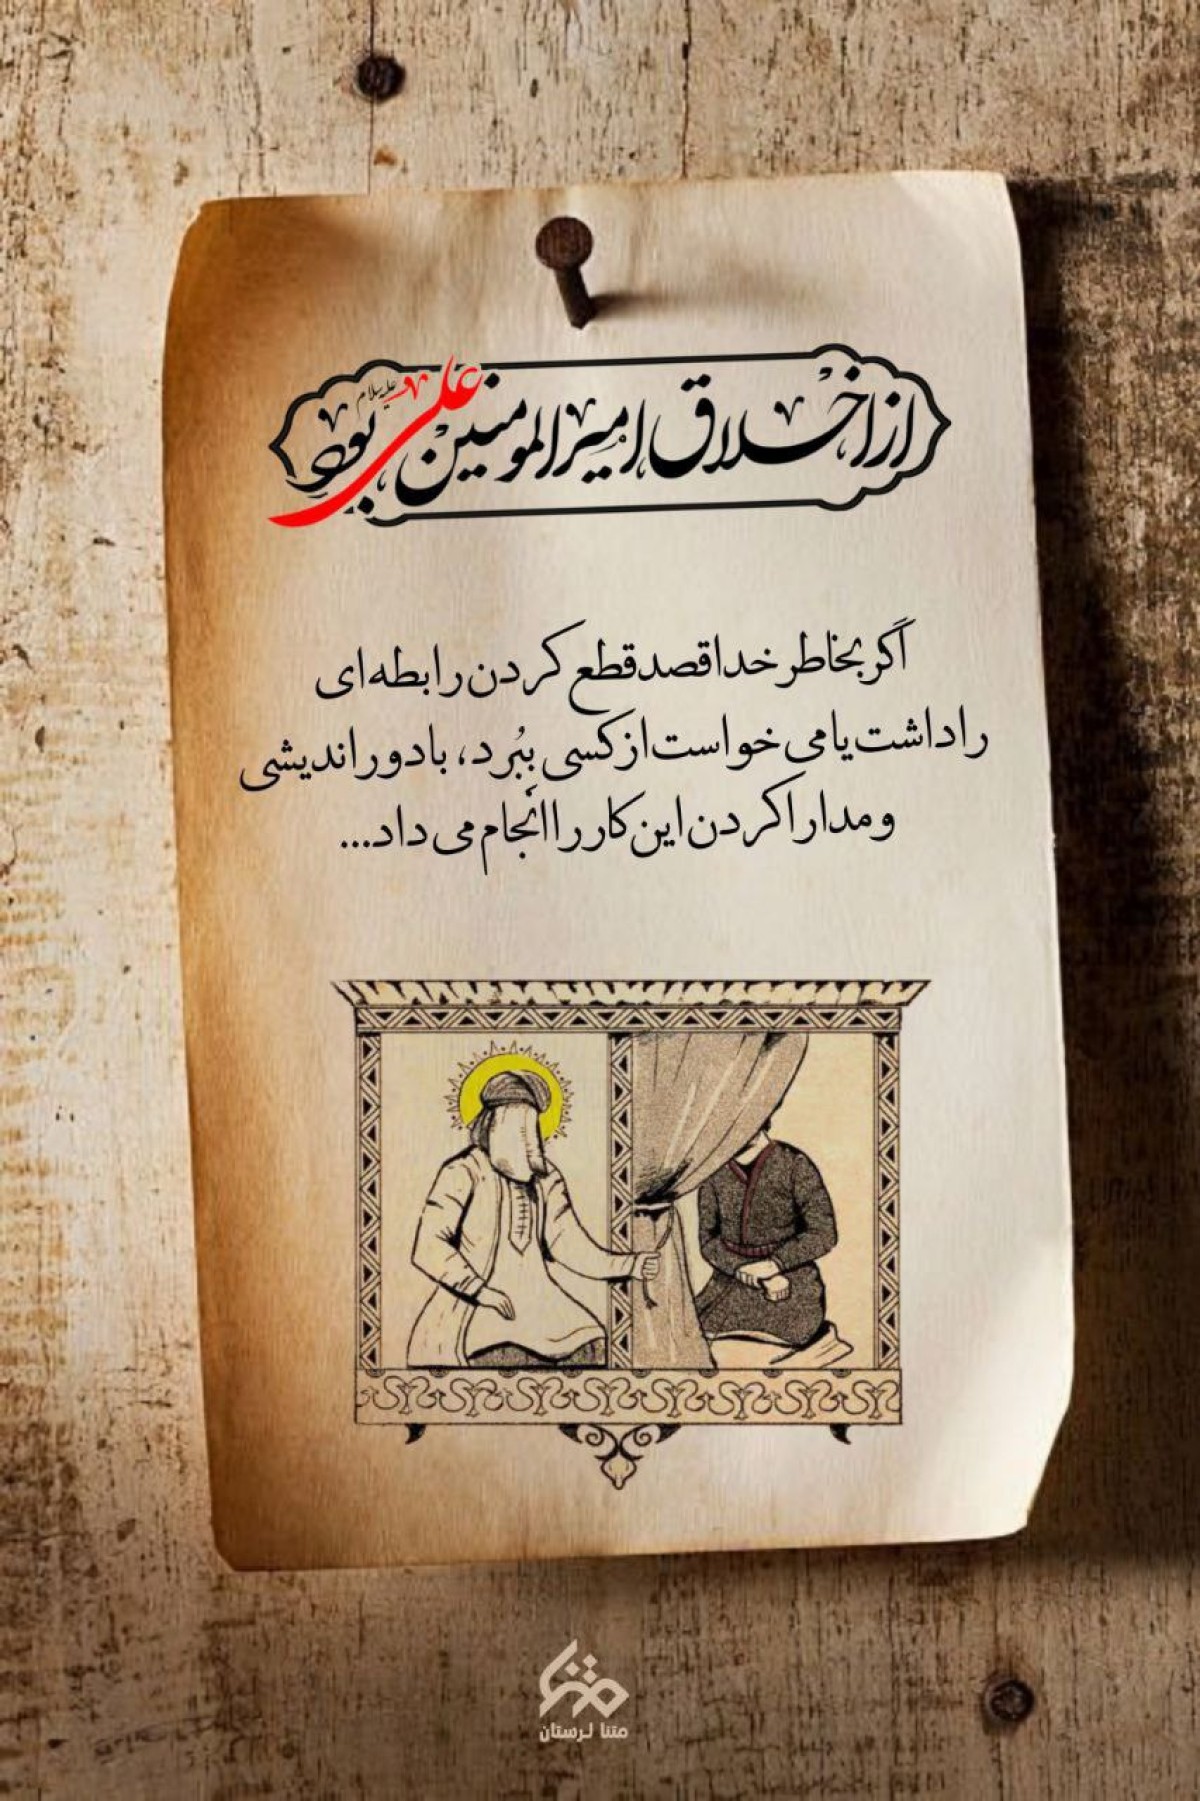 از اخلاق امیرالمومنین علی علیه‌السلام بود
اگر بخاطر خدا قصد قطع کردن رابطه‌ای
را داشت یا می خواست از کسی ببُرد، با دوراندیشی
و مدارا کردن این کار را انجام می داد...
متنا
متنا لرستان